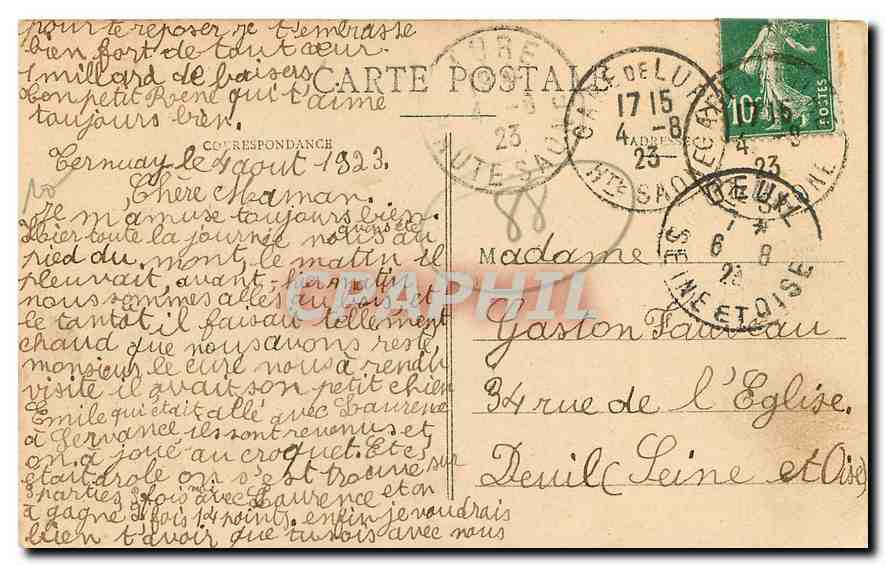 pour te reposer je t'embrasse
bien fort de tout cœur.
1 millard de baisers
ton petit René qui t'aime
toujours bien.
CARTE POSTALE
CORRESPONDANCE
ADRESSE
Ternuay le 4 aout 1923.
Chère Maman.
Je m'amuse toujours bien.
Hier toute la journée nous avons été au
pied du mont, le matin il
pleuvait, avant-hier matin
nous sommes allés au bois, et
le tantôt il faisait tellement
chaud que nous avons resté
monsieur le curé nous à rendu
visite il avait son petit chien
Emile qui était allé avec Laurence
à Servance ils sont revenus et
on a joué au croquet. Etc
était drole on s'est trouvé sur
3 parties 3 fois avec Laurence et on
a gagné 2 fois 14 points. enfin je voudrais
bien t'avoir que tu sois avec nous
Madame
Gaston Fauveau
34 rue de l'Eglise.
Deuil (Seine et Oise)
88
LURE
4 -8
23
HAUTE SAONE
GARE DE LURE
17 15
4 -8
23
HTE SAONE
15
4 8
23
DEUIL
7 *
6 8
23
SEINE ET OISE
10
POSTES
CPAPHIL